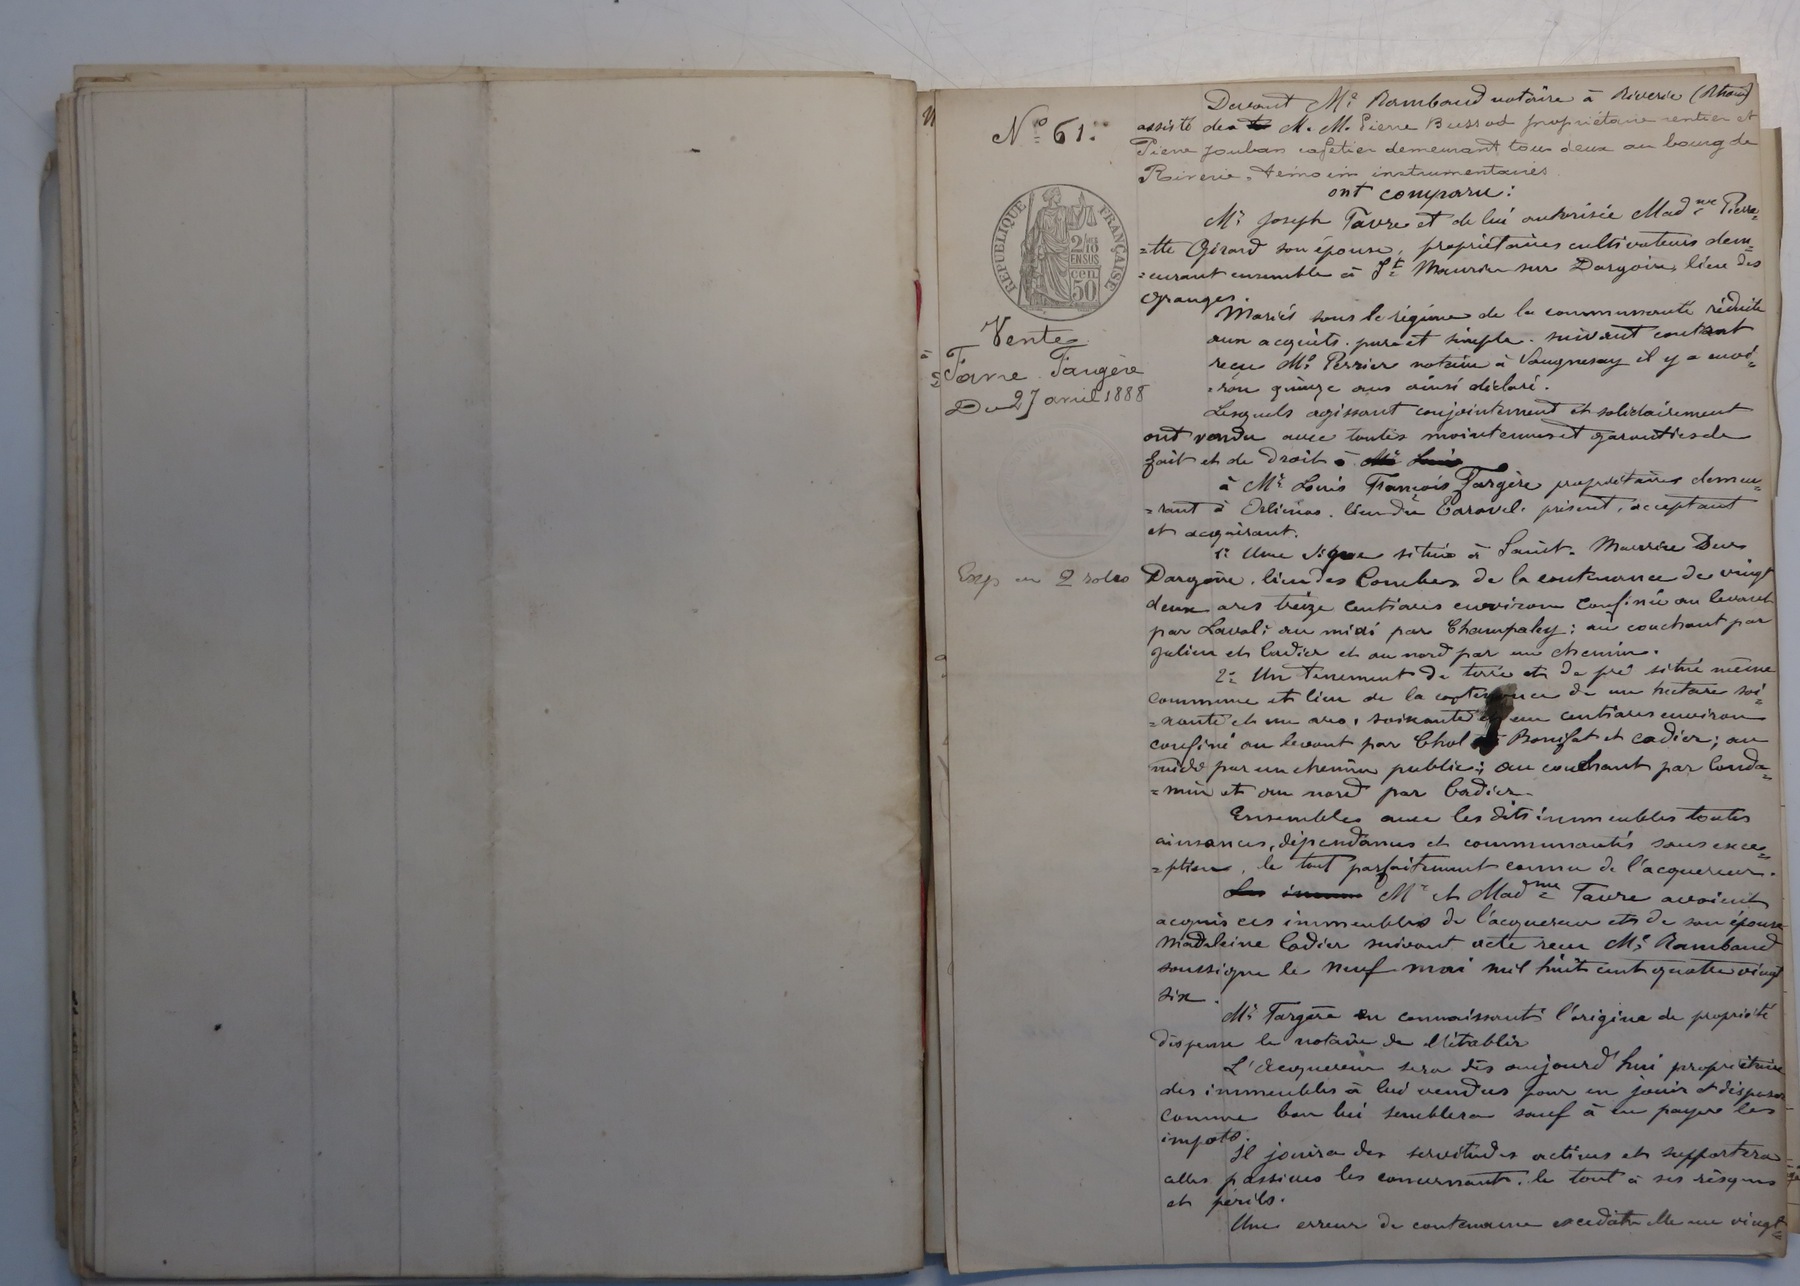 Nº 61.
RÉPUBLIQUE FRANÇAISE
2/10 EN SUS
50 cen
Vente
Favre Fargère
Du 27 avril 1888
Exp en 2 roles
Devant Me Rambaud notaire à Riverie (Rhône)
assisté des M. M. Pierre Bussod propriétaire rentier et
Pierre Jouban cafetier demeurant tous deux au bourg de
Riverie, témoins instrumentaires
ont comparu:
Mr Joseph Favre et de lui autorisée Madme Pierre-
=tte Girard son épouse, propriétaires cultivateurs dem=
=eurant ensemble à St Maurice sur Dargoire, lieu des
Granges.
Mariés sous le régime de la communauté réduite
aux acquets. pure et simple. suivant contrat
reçu Me Perrier notaire à Vaugneray il y a envi=
=ron quinze ans ainsi déclaré.
Lesquels agissant conjointement et solidairement
ont vendu avec toutes maintenues et garanties de
fait et de droit à Mr Louis
à Mr Louis François Fargère propriétaire demeu=
=rant à Orliénas. lieu du Taravel. présent, acceptant
et acquérant.
1º Une vigne située à Saint. Maurice Sur
Dargoire. lieu des Combes de la contenance de vingt
deux ares treize centiares environ confinée au levant
par Laval; au midi par Champaley; au couchant par
Julien et Cadier et au nord par un chemin.
2º Un tenement de terre et de pré situé même
commune et lieu de la contenance de un hectare soi=
=xante et un ares, soixante et un centiares environ
confiné au levant par Chol Bonifat et Cadier; au
midi par un chemin public; au couchant par Conda=
=min et au nord par Cadier.
Ensembles avec les dits immeubles toutes
aisances, dépendances et communautés sans exce=
=ption, le tout parfaitement connu de l'acquereur.
Les imme Mr et Madme Favre avaient
acquis ces immeubles de l'acquereur et de son épouse
Madeleine Cadier suivant acte reçu Me Rambaud
soussigne le neuf mai mil huit cent quatre vingt
six.
Mr Fargère en connaissant l'origine de propriété
dispense le notaire de l'établir
L'acquereur sera dès aujourd'hui propriétaire
des immeubles à lui vendus pour en jouir et disposer
comme bon lui semblera sauf à en payer les
impots.
Il jouira des servitudes actives et supportera
celles passives les concernant. le tout à ses risques
et périls.
Une erreur de contenance excedât elle un vingt=